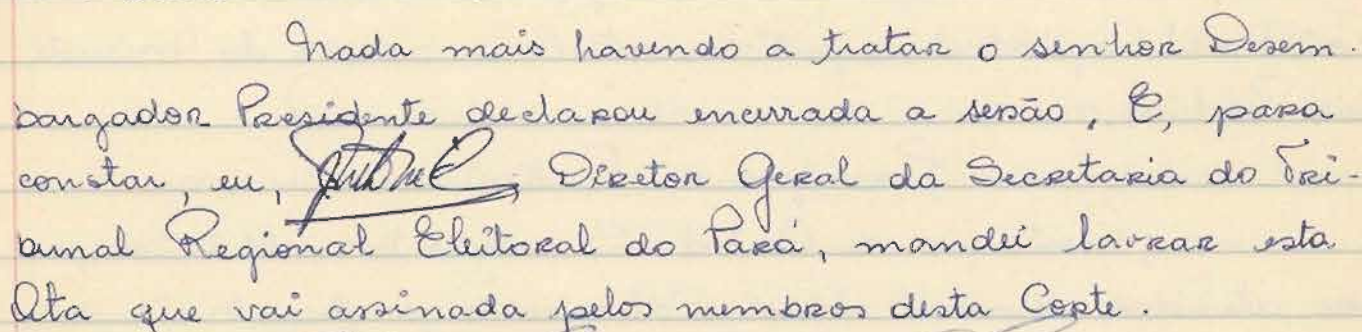 Nada mais havendo a tratar o senhor Desem-
bargador Presidente declarou encerrada a sessão, E, para
constar, eu, Diretor Geral da Secretaria do Tri-
bunal Regional Eleitoral do Pará, mandei lavrar esta
Ata que vai assinada pelos membros desta Corte.